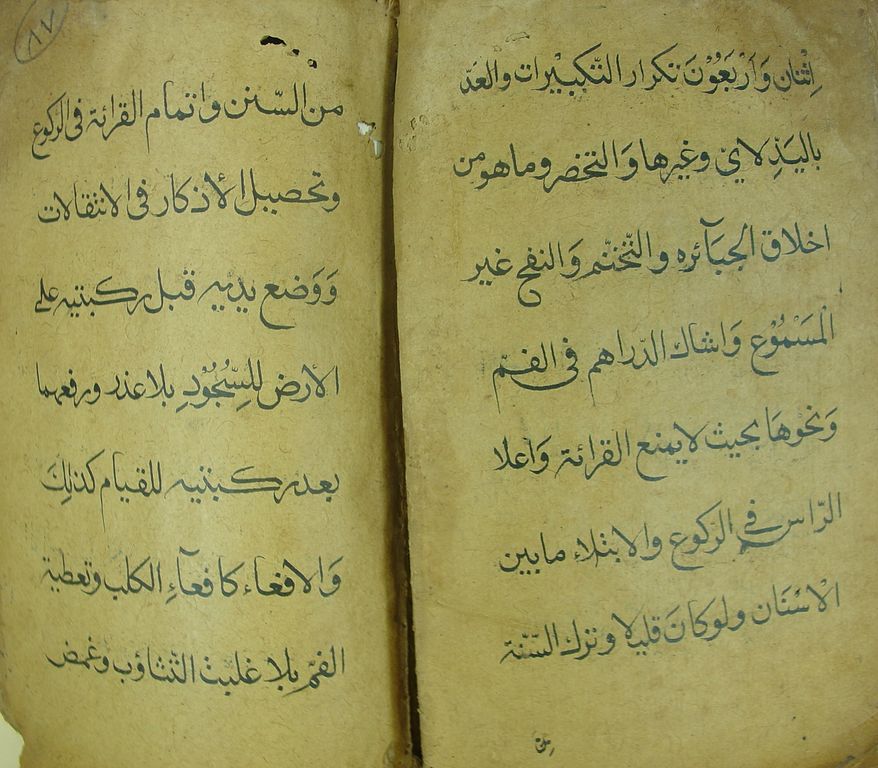 اِثْنَانِ وَاَرْبَعُوْنَ تكرار التّكبيْرات والعدّ
باليَدِ لاىٍ وغيرها وَالتخصّر وماهو من
اخلاق الجبَآئره والتّخننم وَالنفخ غير
الْمَسْمُوْعِ وَامساك الدّراهم فى الفمّ
وَنحوهَا بحيث لايمنع القرائة وَاعلا
الرّاس فى الركوع والابتلاء مابين
الاَسْنَان ولوكانَ قليلا وترك السّنّة
من
٨٧
من السّنن واتمام القرائة فى الركوع
وتحصيل الأذكار فى الانتقالات
وَوَضع يديه قبل ركبتيه على
الارض للسِّجُوْدِ بلا عذر ورفعهما
بعد ركبتيه للقيام كذلِكَ
وَالاقعاء كاقعآءِ الكلب وتغطية
الفمّ بلا غلبة التّثاؤب وغمض